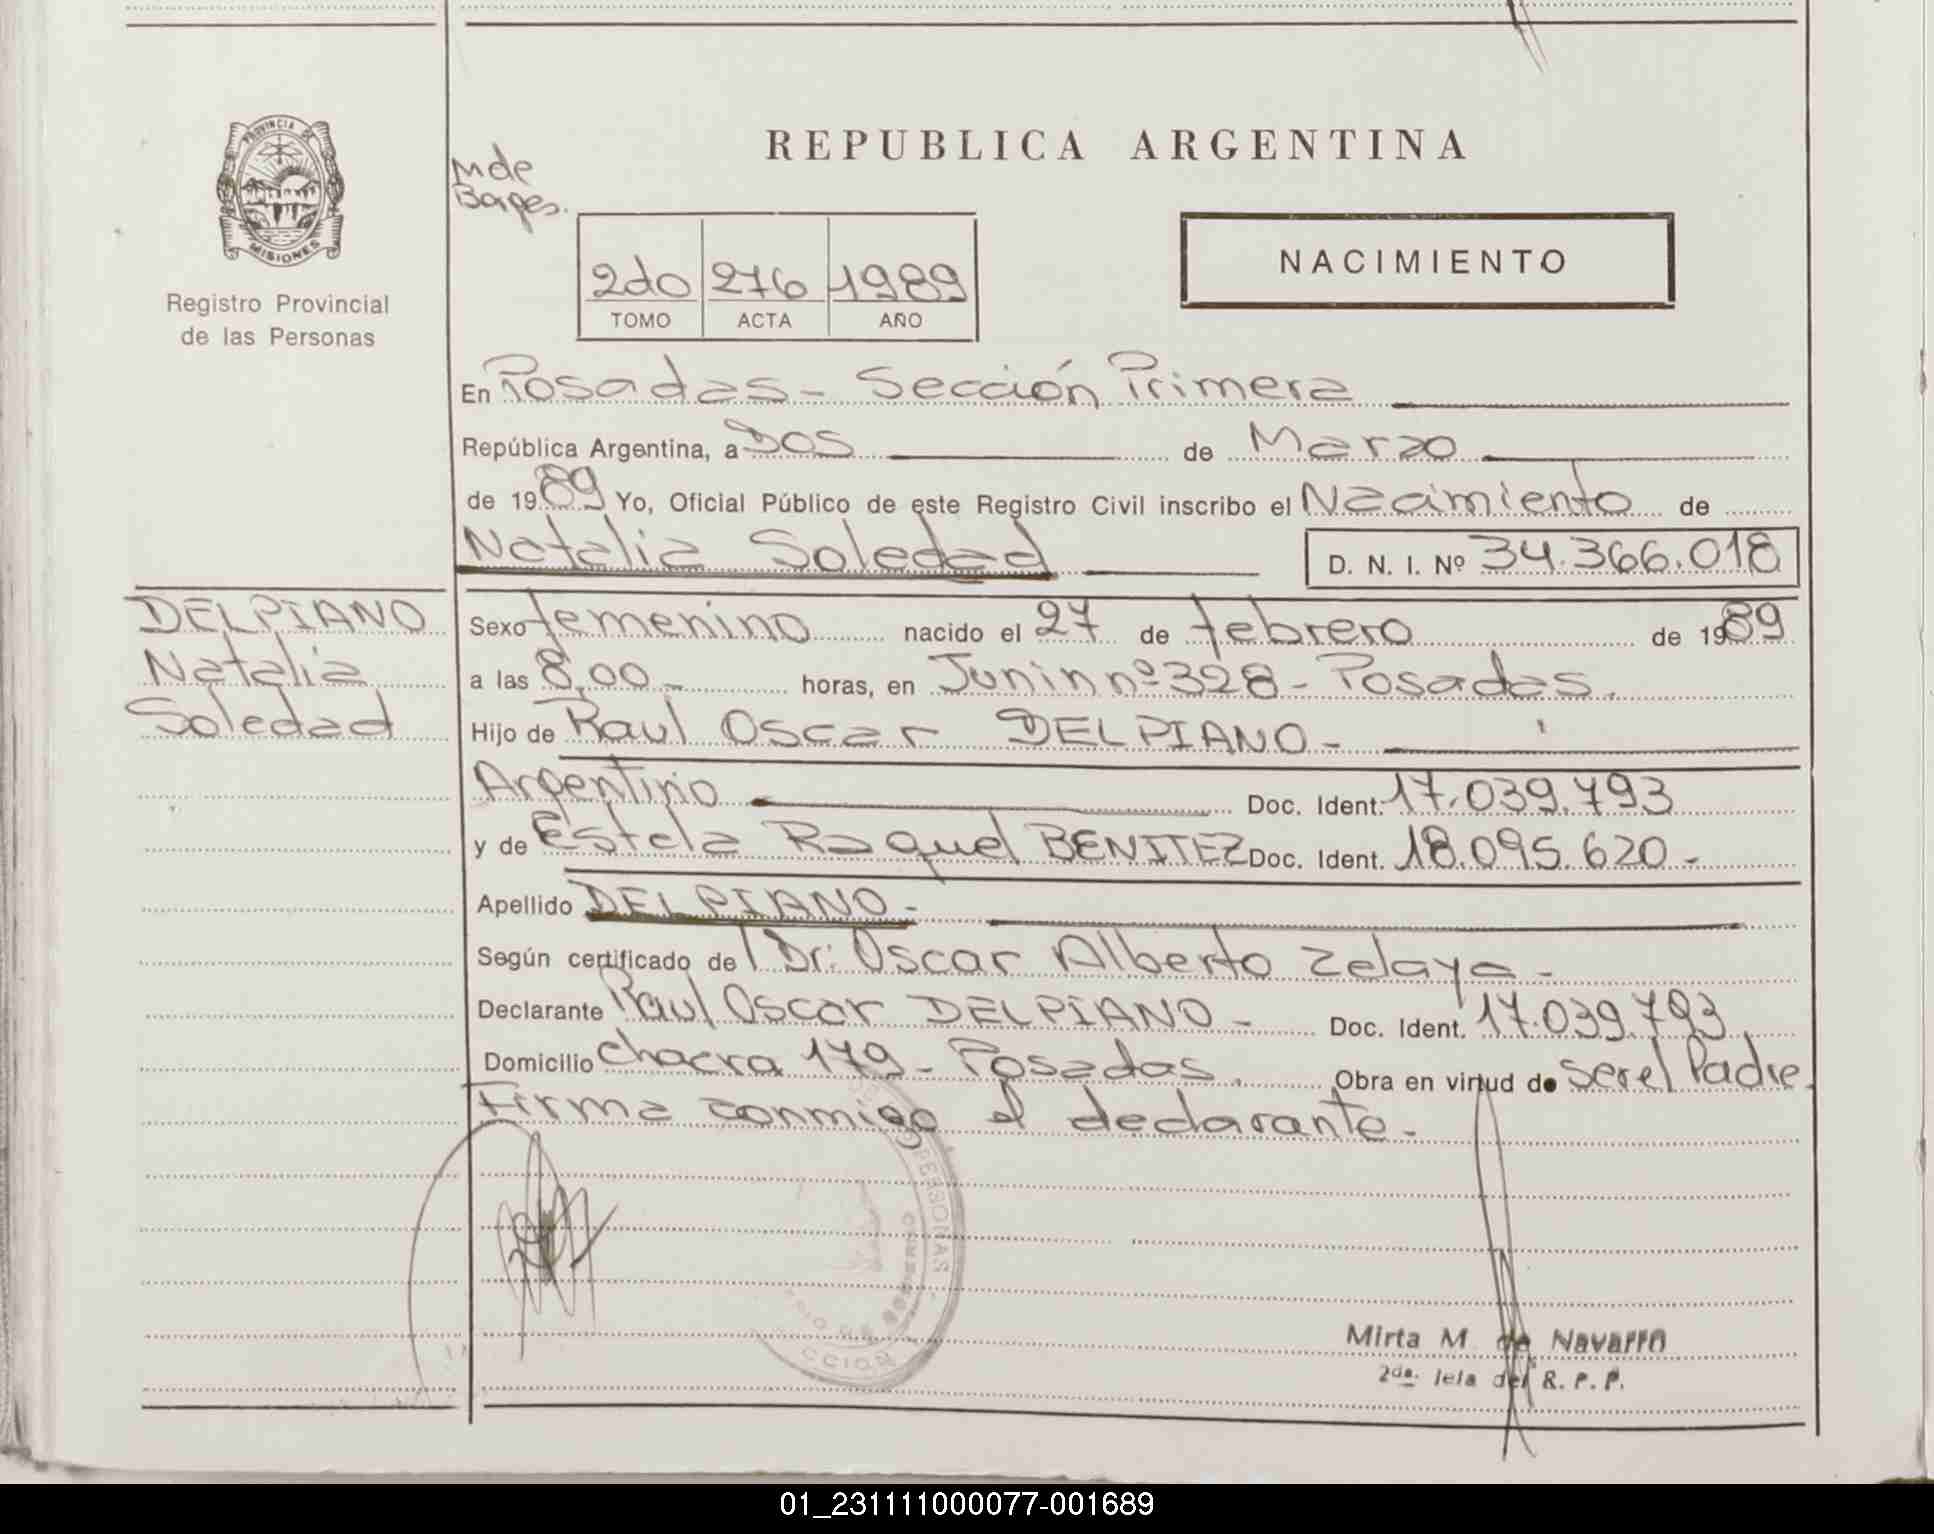 PROVINCIA DE
MISIONES
Registro Provincial
de las Personas
M de
Borges.
REPUBLICA ARGENTINA
2do 276 1989
TOMO ACTA AÑO
NACIMIENTO
En Posadas - Sección Primera
República Argentina, a Dos de Marzo
de 1989 Yo, Oficial Público de este Registro Civil inscribo el Nacimiento de
Natalia Soledad D. N. I. Nº 34.366.018
DELPIANO
Natalia
Soledad
Sexo femenino nacido el 27 de febrero de 1989
a las 8,00 - horas, en Junin nº 328 - Posadas.
Hijo de Raul Oscar DELPIANO -
Argentino Doc. Ident. 17.039.793
y de Estela Raquel BENITEZ Doc. Ident. 18.095.620 -
Apellido DELPIANO -
Según certificado de l Dr. Oscar Alberto Zelaya -
Declarante Raul Oscar DELPIANO - Doc. Ident. 17.039.793
Domicilio chacra 179 - Posadas. Obra en virtud de ser el Padre.
Firma conmigo el declarante -
PERSONAS
GOBIERNO
Mirta M. de Navarro
2da. Jefa del R. P. P.
01_231111000077-001689